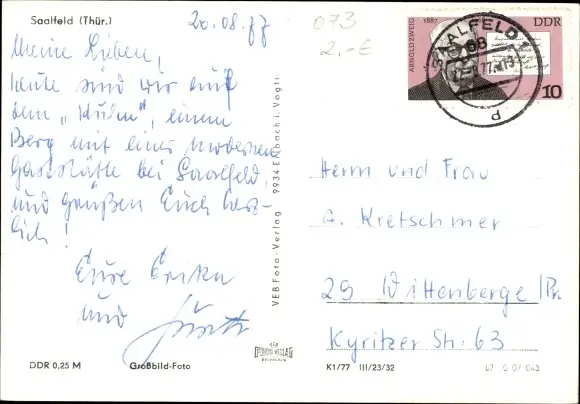 Saalfeld (Thür.)
20.08.77
073
2.-€
Meine Lieben,
heute sind wir auf
dem "Kulm", einem
Berg mit einer modernen
Gaststätte bei Saalfeld,
und grüßen Euch herz-
lich!
Eure Erika
und
DDR 0,25 M
Großbild-Foto
VEB Foto-Verlag 9934 Erlbach i. Vogtl.
ARNOLD ZWEIG
1887
DDR
10
SAALFELD
d
Herrn und Frau
G. Kretschmer
29 Wittenberge/Pr.
Kyritzer Str. 63
K1/77 III/23/32